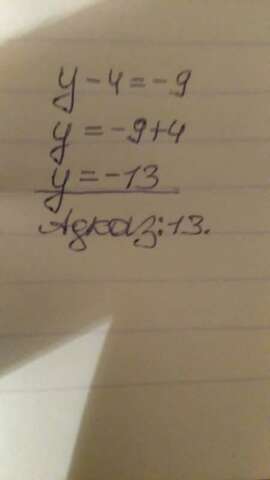 y-4=-9
y=-9+4
y=-13
Адказ:13.